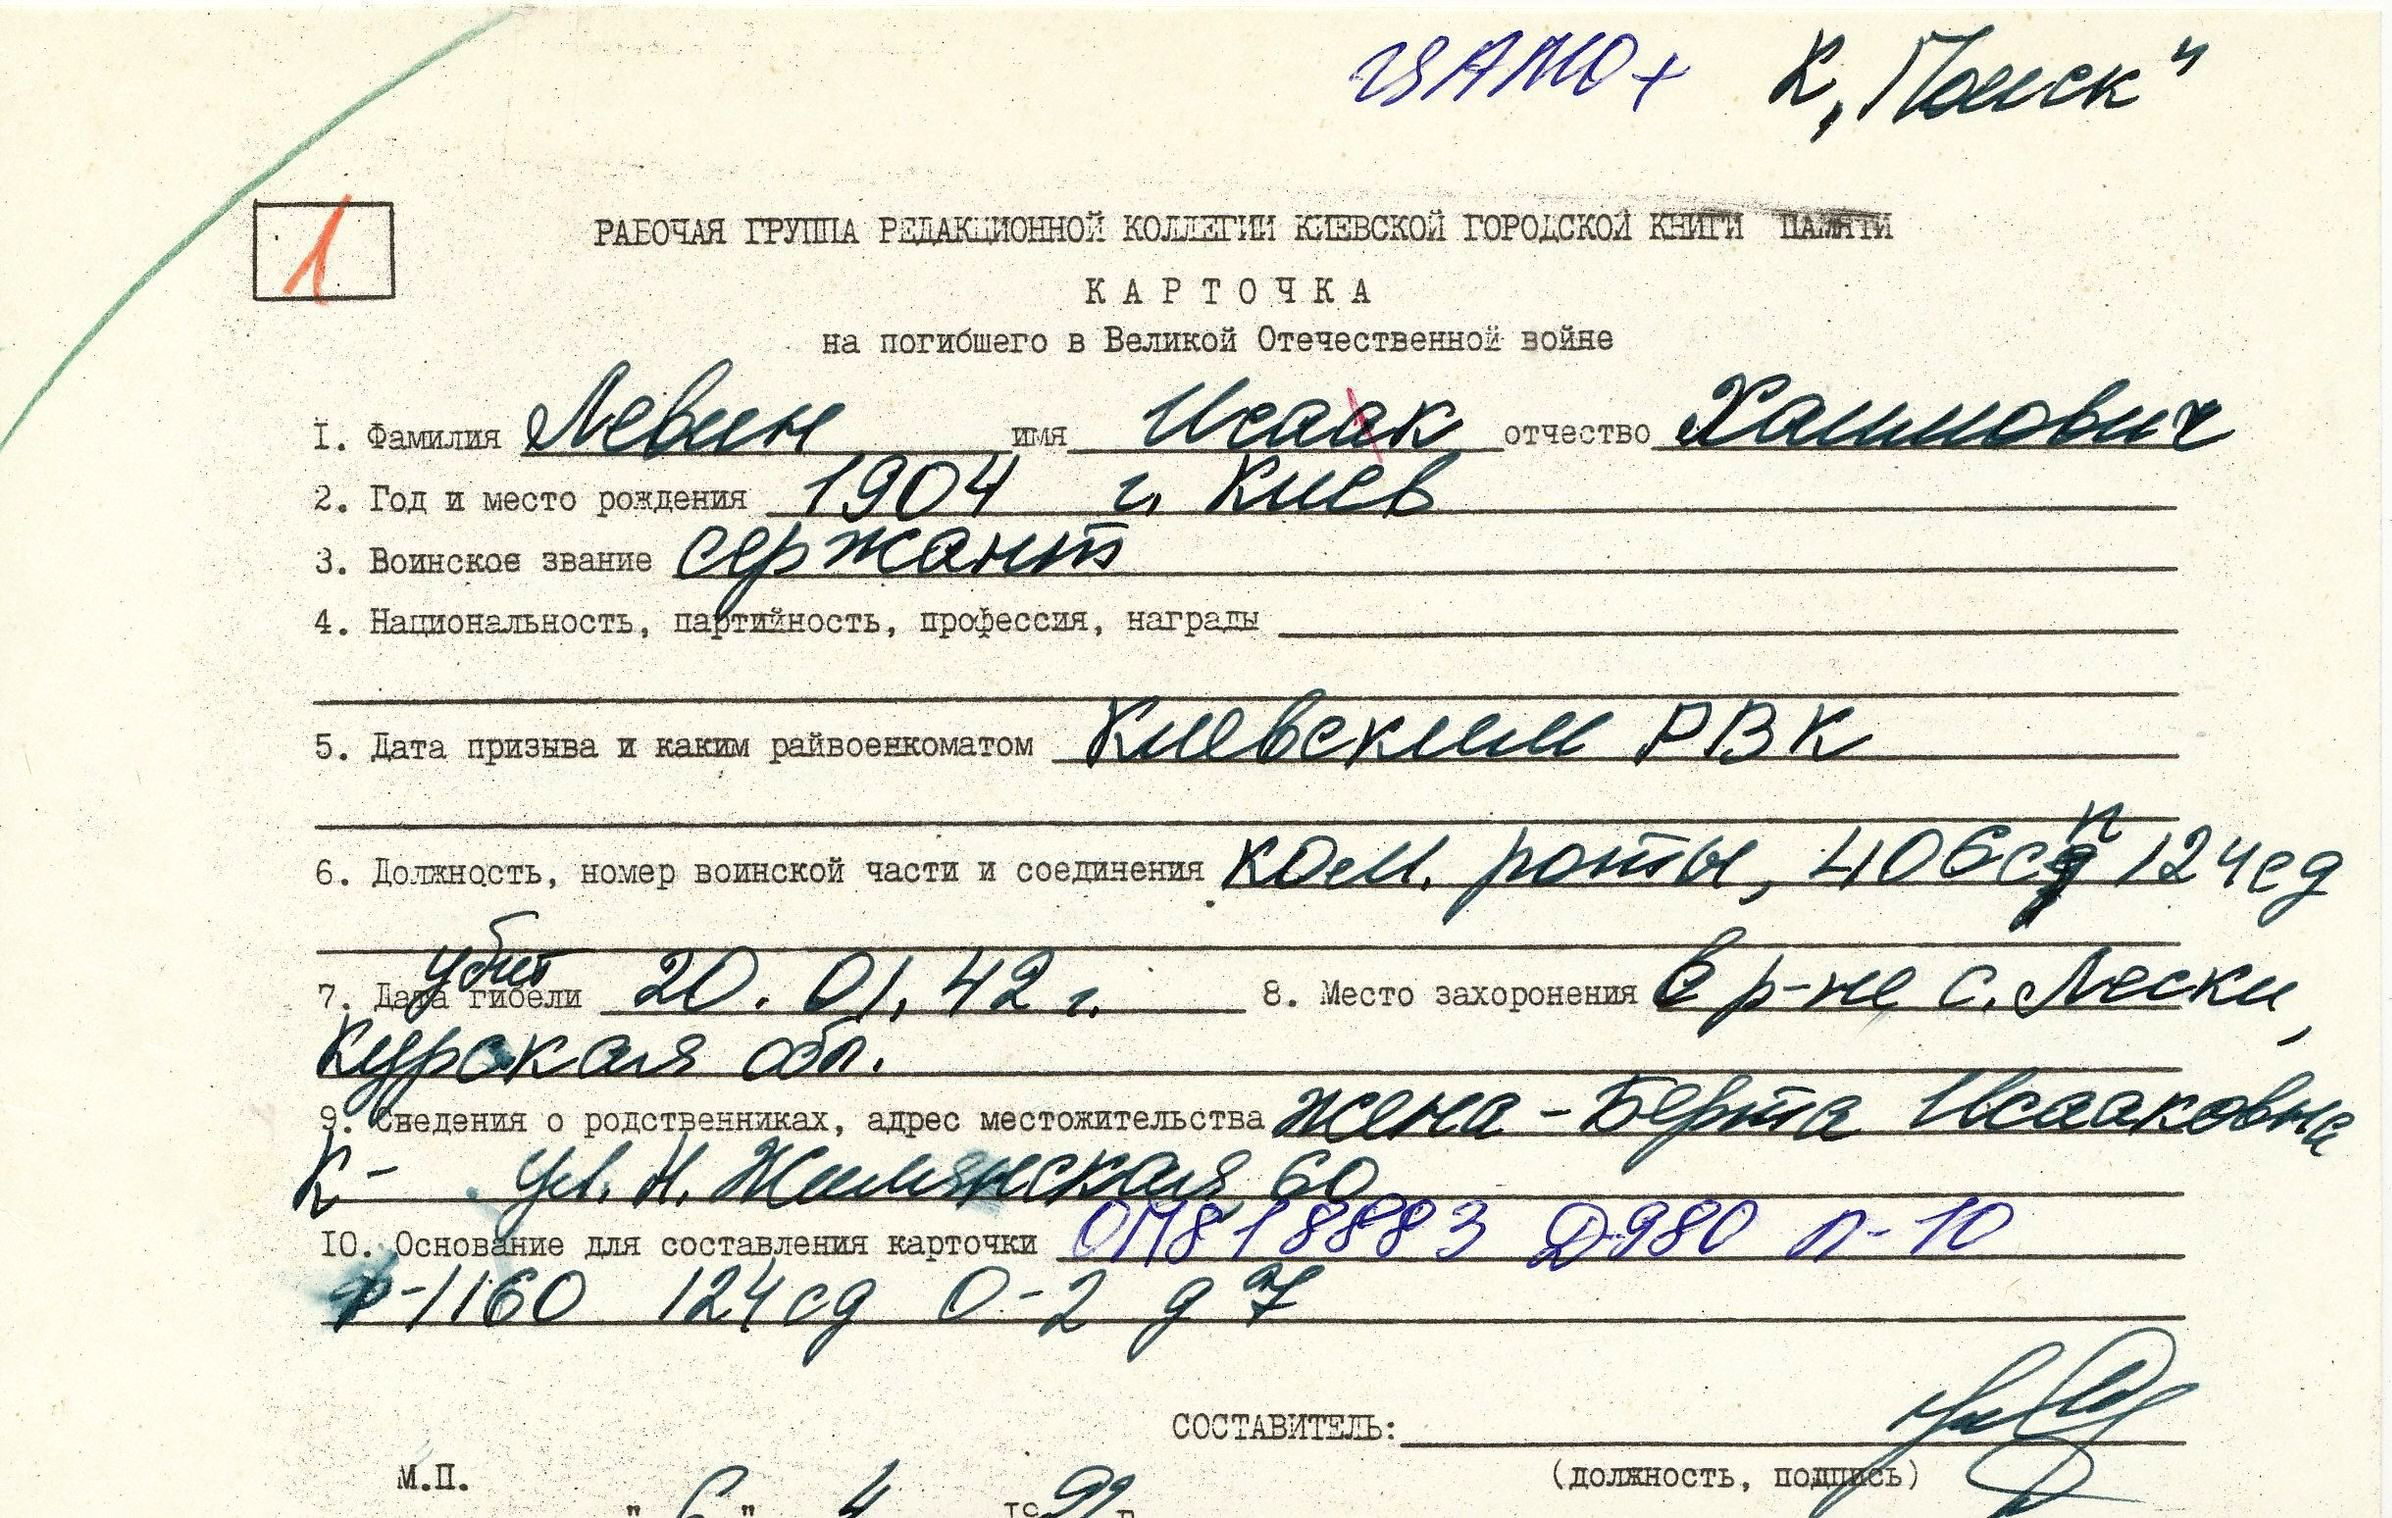 ЦАМО + К „Поиск“
1
РАБОЧАЯ ГРУППА РЕДАКЦИОННОЙ КОЛЛЕГИИ КИЕВСКОЙ ГОРОДСКОЙ КНИГИ ПАМЯТИ
КАРТОЧКА
на погибшего в Великой Отечественной войне
1. Фамилия Левин имя Исаак отчество Хаимович
2. Год и место рождения 1904 г. Киев
3. Воинское звание сержант
4. Национальность, партийность, профессия, награды
5. Дата призыва и каким райвоенкоматом Киевским РВК
6. Должность, номер воинской части и соединения ком. роты, 406сп 124сд
убит
7. Дата гибели 20.01.42 г. 8. Место захоронения в р-не с. Лески,
Курская обл.
9. Сведения о родственниках, адрес местожительства жена - Берта Исааковна
К- ул. Н. Жилянская, 60
10. Основание для составления карточки ОП818883 Д980 п-10
ф-1160 124сд О-2 д 7
СОСТАВИТЕЛЬ:
(должность, подпись)
М.П.
" 6 " 4 19 г.